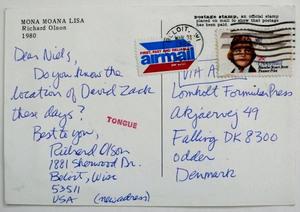 MONA MOANA LISA
Richard Olson
1980
Dear Niels,
Do you know the
location of David Zack
these days?
Best to you,
Richard Olson
1881 Sherwood Dr.
Beloit, Wisc
53511
USA (new adress)
TONGUE
postage stamp, an official stamp
placed on mail to show that postage
has been paid.
airmail
VIA A
Lomholt Formular Press
Akjaervej 49
Falling DK 8300
Odder
Denmark